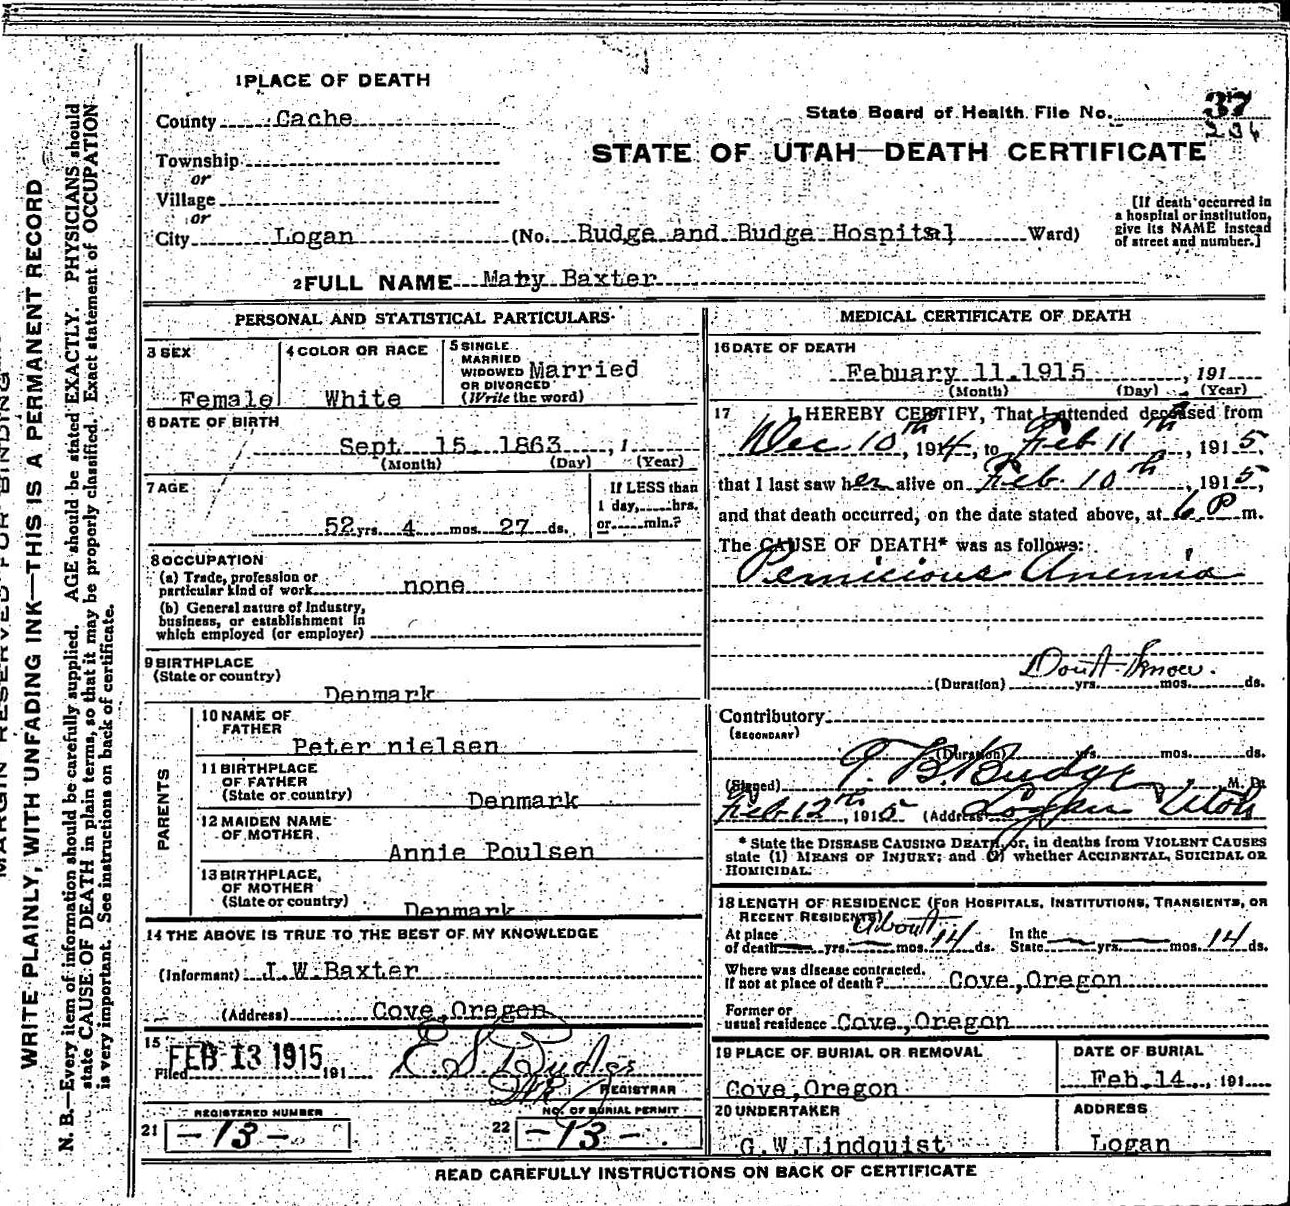 1 PLACE OF DEATH
County Cache
State Board of Health File No. 37
234
Township
or
Village
or
City Logan (No. Budge and Budge Hospital Ward)
[If death occurred in a hospital or institution, give its NAME instead of street and number.]
STATE OF UTAH—DEATH CERTIFICATE
2 FULL NAME Mary Baxter
PERSONAL AND STATISTICAL PARTICULARS
3 SEX
Female
4 COLOR OR RACE
White
5 SINGLE
MARRIED
WIDOWED
OR DIVORCED
(Write the word)
Married
6 DATE OF BIRTH
Sept 15 1863, 1
(Month) (Day) (Year)
7 AGE
52 yrs. 4 mos. 27 ds.
If LESS than
1 day, hrs.
or min.?
8 OCCUPATION
(a) Trade, profession or
particular kind of work none
(b) General nature of Industry,
business, or establishment in
which employed (or employer)
9 BIRTHPLACE
(State or country)
Denmark
PARENTS
10 NAME OF
FATHER
Peter nielsen
11 BIRTHPLACE
OF FATHER
(State or country)
Denmark
12 MAIDEN NAME
OF MOTHER
Annie Poulsen
13 BIRTHPLACE,
OF MOTHER
(State or country)
Denmark
14 THE ABOVE IS TRUE TO THE BEST OF MY KNOWLEDGE
(Informant) J.W.Baxter
(Address) Cove,Oregon
15
Filed FEB 13 1915 191
E S Budge
REGISTRAR
REGISTERED NUMBER
21 -13-
NO. OF BURIAL PERMIT
22 -13-
MEDICAL CERTIFICATE OF DEATH
16 DATE OF DEATH
Febuary 11.1915, 191
(Month) (Day) (Year)
17 I HEREBY CERTIFY, That I attended deceased from
Dec 10th, 1914, to Feb 11th, 1915,
that I last saw her alive on Feb. 10th, 1915,
and that death occurred, on the date stated above, at 6 P m.
The CAUSE OF DEATH* was as follows:
Pernicious Anemia
Don't Know.
(Duration) yrs. mos. ds.
Contributory
(SECONDARY)
(Duration) yrs. mos. ds.
(Signed) T. B. Budge, M. D.
Feb 12th, 1915 (Address) Logan Utah
* State the DISEASE CAUSING DEATH, or, in deaths from VIOLENT CAUSES
state (1) MEANS OF INJURY; and (2) whether ACCIDENTAL, SUICIDAL OR
HOMICIDAL.
18 LENGTH OF RESIDENCE (FOR HOSPITALS, INSTITUTIONS, TRANSIENTS, OR
RECENT RESIDENTS)
At place
of death yrs. About mos. 14 ds.
In the
State yrs. mos. 14 ds.
Where was disease contracted,
if not at place of death? Cove,Oregon
Former or
usual residence Cove,Oregon
19 PLACE OF BURIAL OR REMOVAL
Cove,Oregon
DATE OF BURIAL
Feb.14., 191
20 UNDERTAKER
G.W.Lindquist
ADDRESS
Logan
READ CAREFULLY INSTRUCTIONS ON BACK OF CERTIFICATE
MARGIN RESERVED FOR BINDING
WRITE PLAINLY, WITH UNFADING INK—THIS IS A PERMANENT RECORD
N. B.—Every item of information should be carefully supplied. AGE should be stated EXACTLY. PHYSICIANS should
state CAUSE OF DEATH in plain terms, so that it may be properly classified. Exact statement of OCCUPATION
is very important. See instructions on back of certificate.